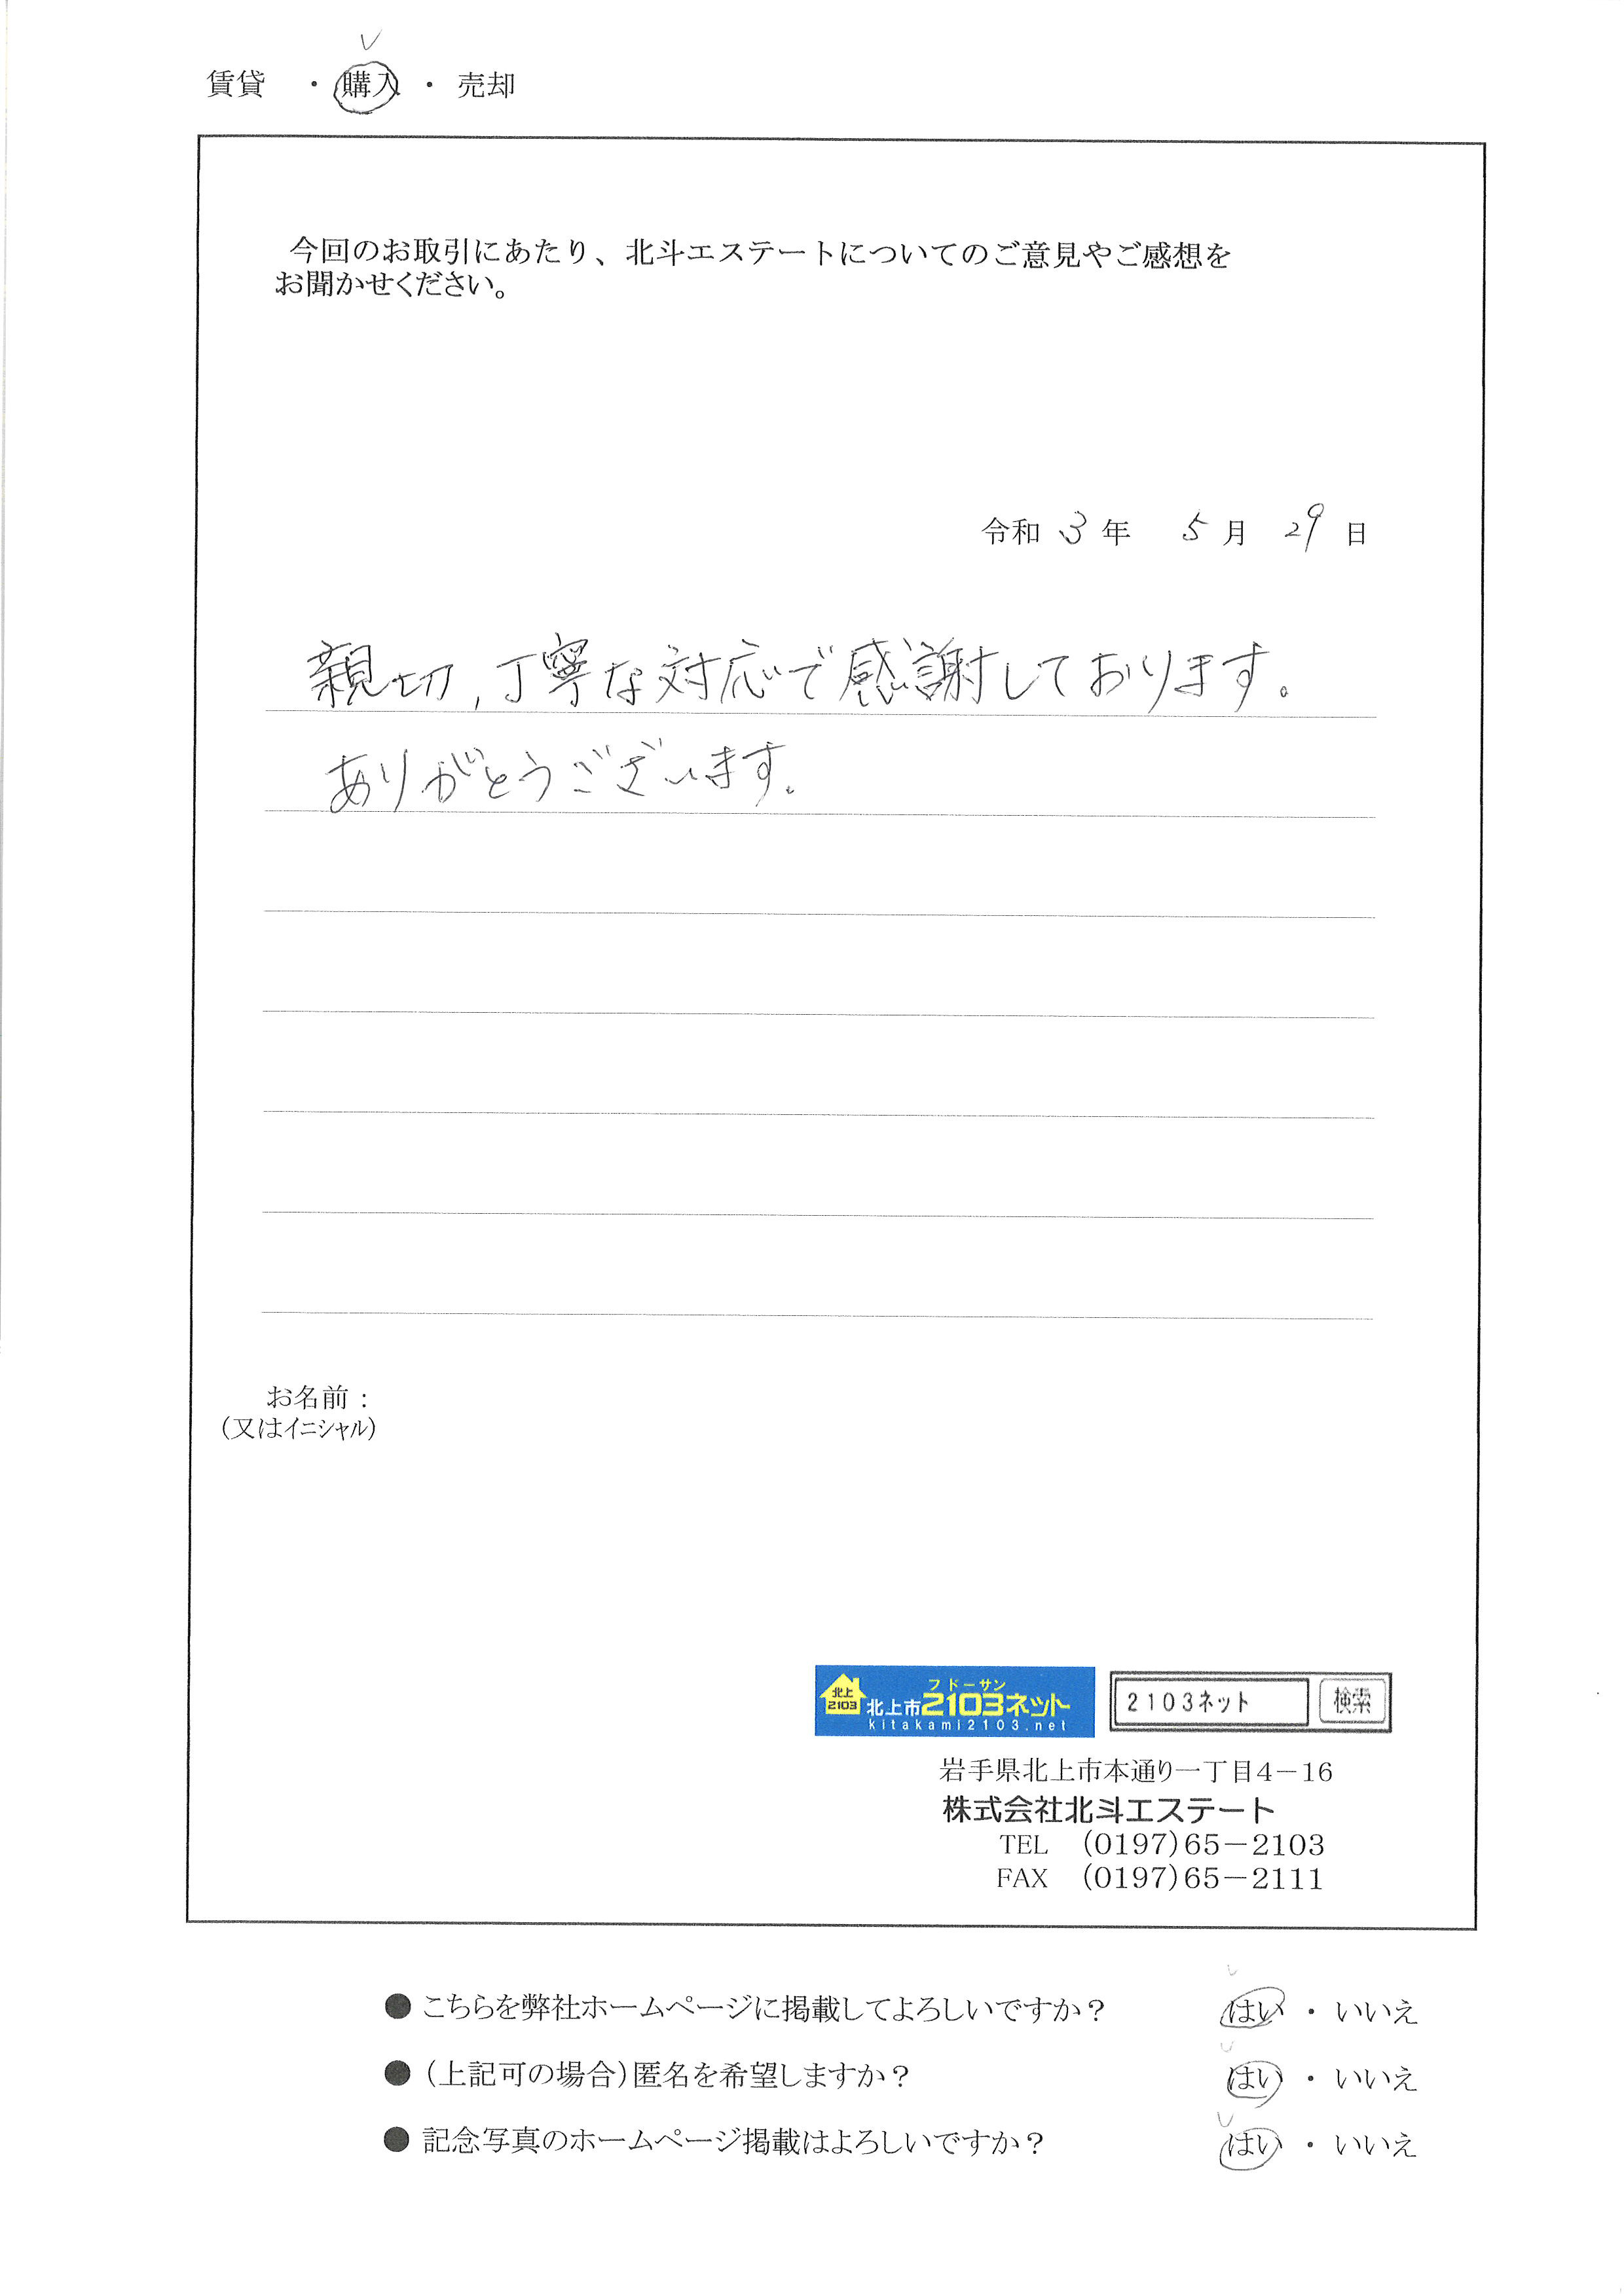 賃貸 ・ 購入 ・ 売却
今回のお取引にあたり、北斗エステートについてのご意見やご感想を
お聞かせください。
令和 3 年 5 月 29 日
親切,丁寧な対応で感謝しております。
ありがとうございます。
お名前：
（又はイニシャル）
北上
2103
フドーサン
北上市2103ネット
kitakami2103.net
2103ネット 検索
岩手県北上市本通り一丁目4－16
株式会社北斗エステート
TEL （0197）65－2103
FAX （0197）65－2111
●こちらを弊社ホームページに掲載してよろしいですか？ はい ・ いいえ
●（上記可の場合）匿名を希望しますか？ はい ・ いいえ
●記念写真のホームページ掲載はよろしいですか？ はい ・ いいえ